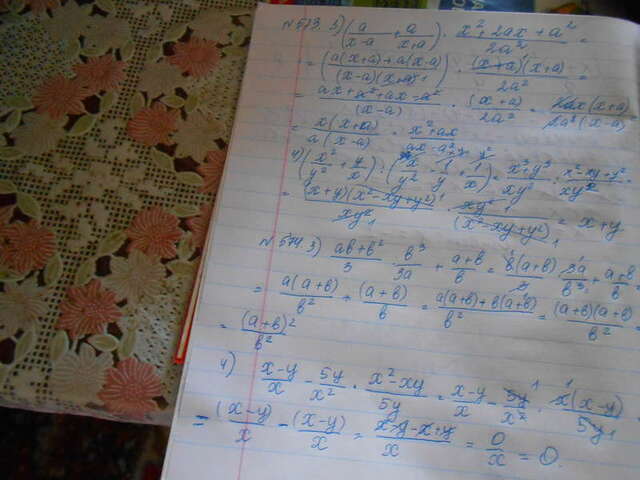 N 573. 3) (a/(x-a) + a/(x+a)) · (x²+2ax+a²)/2a² =
= (a(x+a)+a(x-a))/((x-a)(x+a)) · ((x+a)(x+a))/2a² =
= (ax+a²+ax-a²)/(x-a) · (x+a)/2a² = 2ax(x+a)/2a²(x-a) =
= x(x+a)/a(x-a) = (x²+ax)/(ax-a²)
4) (x²/y² + y/x) : (x/y² - 1/y + 1/x) = (x³+y³)/xy² : (x²-xy+y²)/xy² =
= (x+y)(x²-xy+y²)/xy² · xy²/(x²-xy+y²) = x+y
N 574. 3) (ab+b²)/3 : b³/3a + (a+b)/b = b(a+b)/3 · 3a/b³ + (a+b)/b =
= a(a+b)/b² + (a+b)/b = (a(a+b)+b(a+b))/b² = (a+b)(a+b)/b² =
= (a+b)²/b²
4) (x-y)/x - 5y/x² · (x²-xy)/5y = (x-y)/x - 5y/x² · x(x-y)/5y =
= (x-y)/x - (x-y)/x = (x-y-x+y)/x = 0/x = 0.